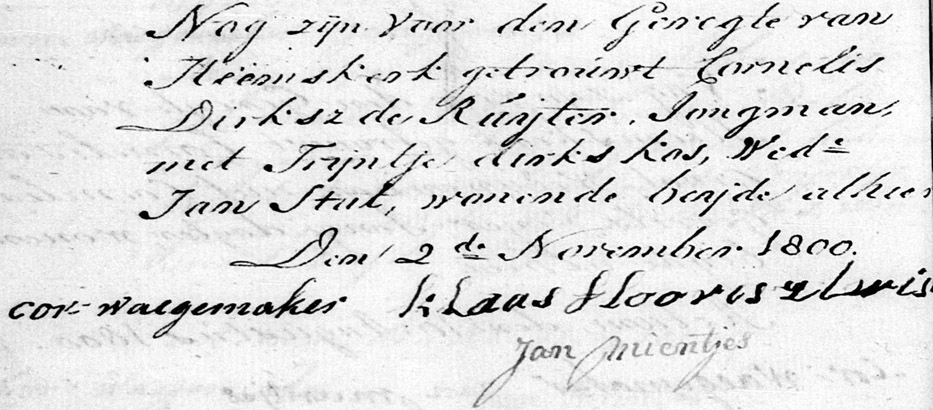 Nog zijn voor den Geregte van
Heemskerk getrouwt Cornelis
Dirksz de Ruijter, Jongman,
met Trijntje dirks kos, Wedᵉ
Jan Stut, wonende beijde alhier
Den 2de November 1800.
cor waegemaker Klaas Floorisz
Jan Mientjes